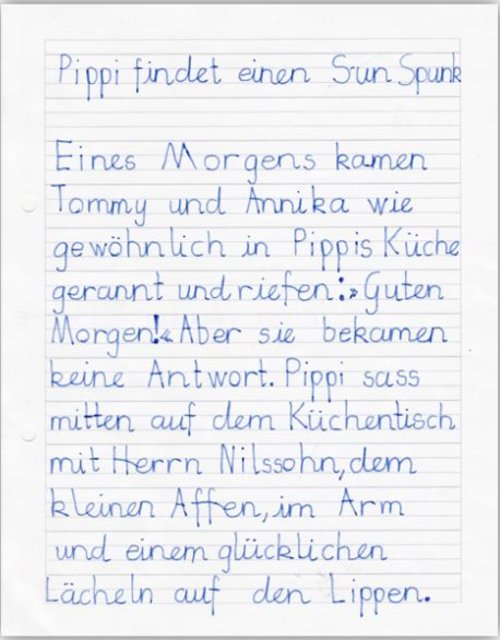 Pippi findet einen Sun Spunk
Eines Morgens kamen
Tommy und Annika wie
gewöhnlich in Pippis Küche
gerannt und riefen: »Guten
Morgen!« Aber sie bekamen
keine Antwort. Pippi sass
mitten auf dem Küchentisch
mit Herrn Nilssohn, dem
kleinen Affen, im Arm
und einem glücklichen
Lächeln auf den Lippen.